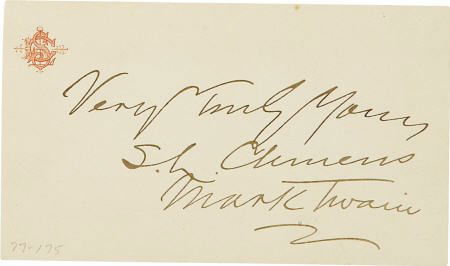 Very Truly Yours
S. L. Clemens
Mark Twain
77-175